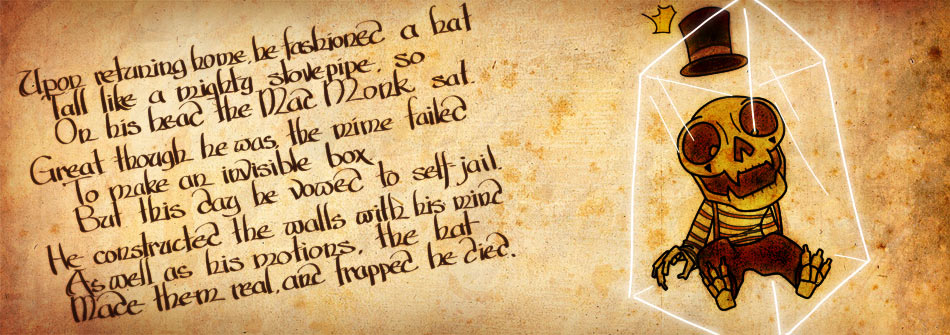 Upon retuning home, he fashioned a hat
Tall like a mighty stovepipe, so
On his head the Mad Monk sat.
Great though he was, the mime failed
To make an invisible box
But this day he vowed to self-jail.
He constructed the walls with his mind
As well as his motions, the hat
Made them real, and trapped he died.